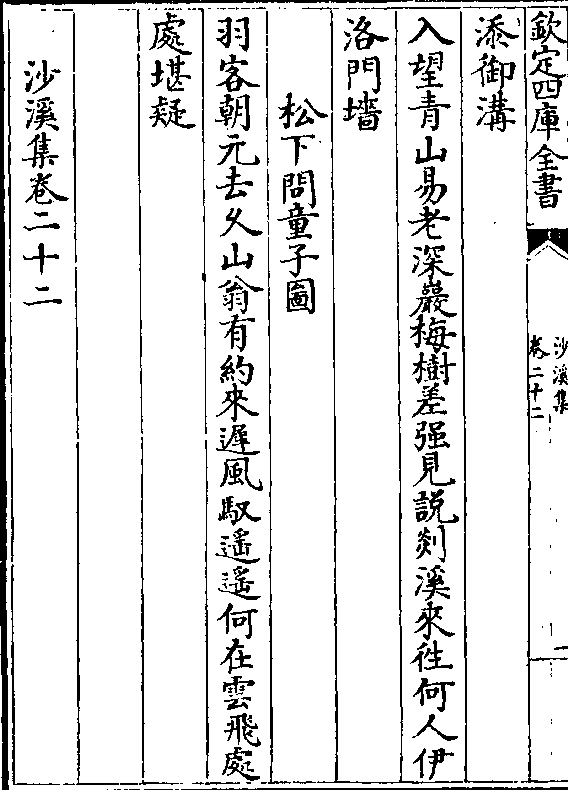 欽定四庫全書
沙溪集
卷二十二
添御溝
入望青山易老深巖梅樹差强見說剡溪來徃何人伊
洛門墻
松下問童子圖
羽客朝元去乆山翁有約來遲風馭遥遥何在雲飛處
處堪疑
沙溪集卷二十二